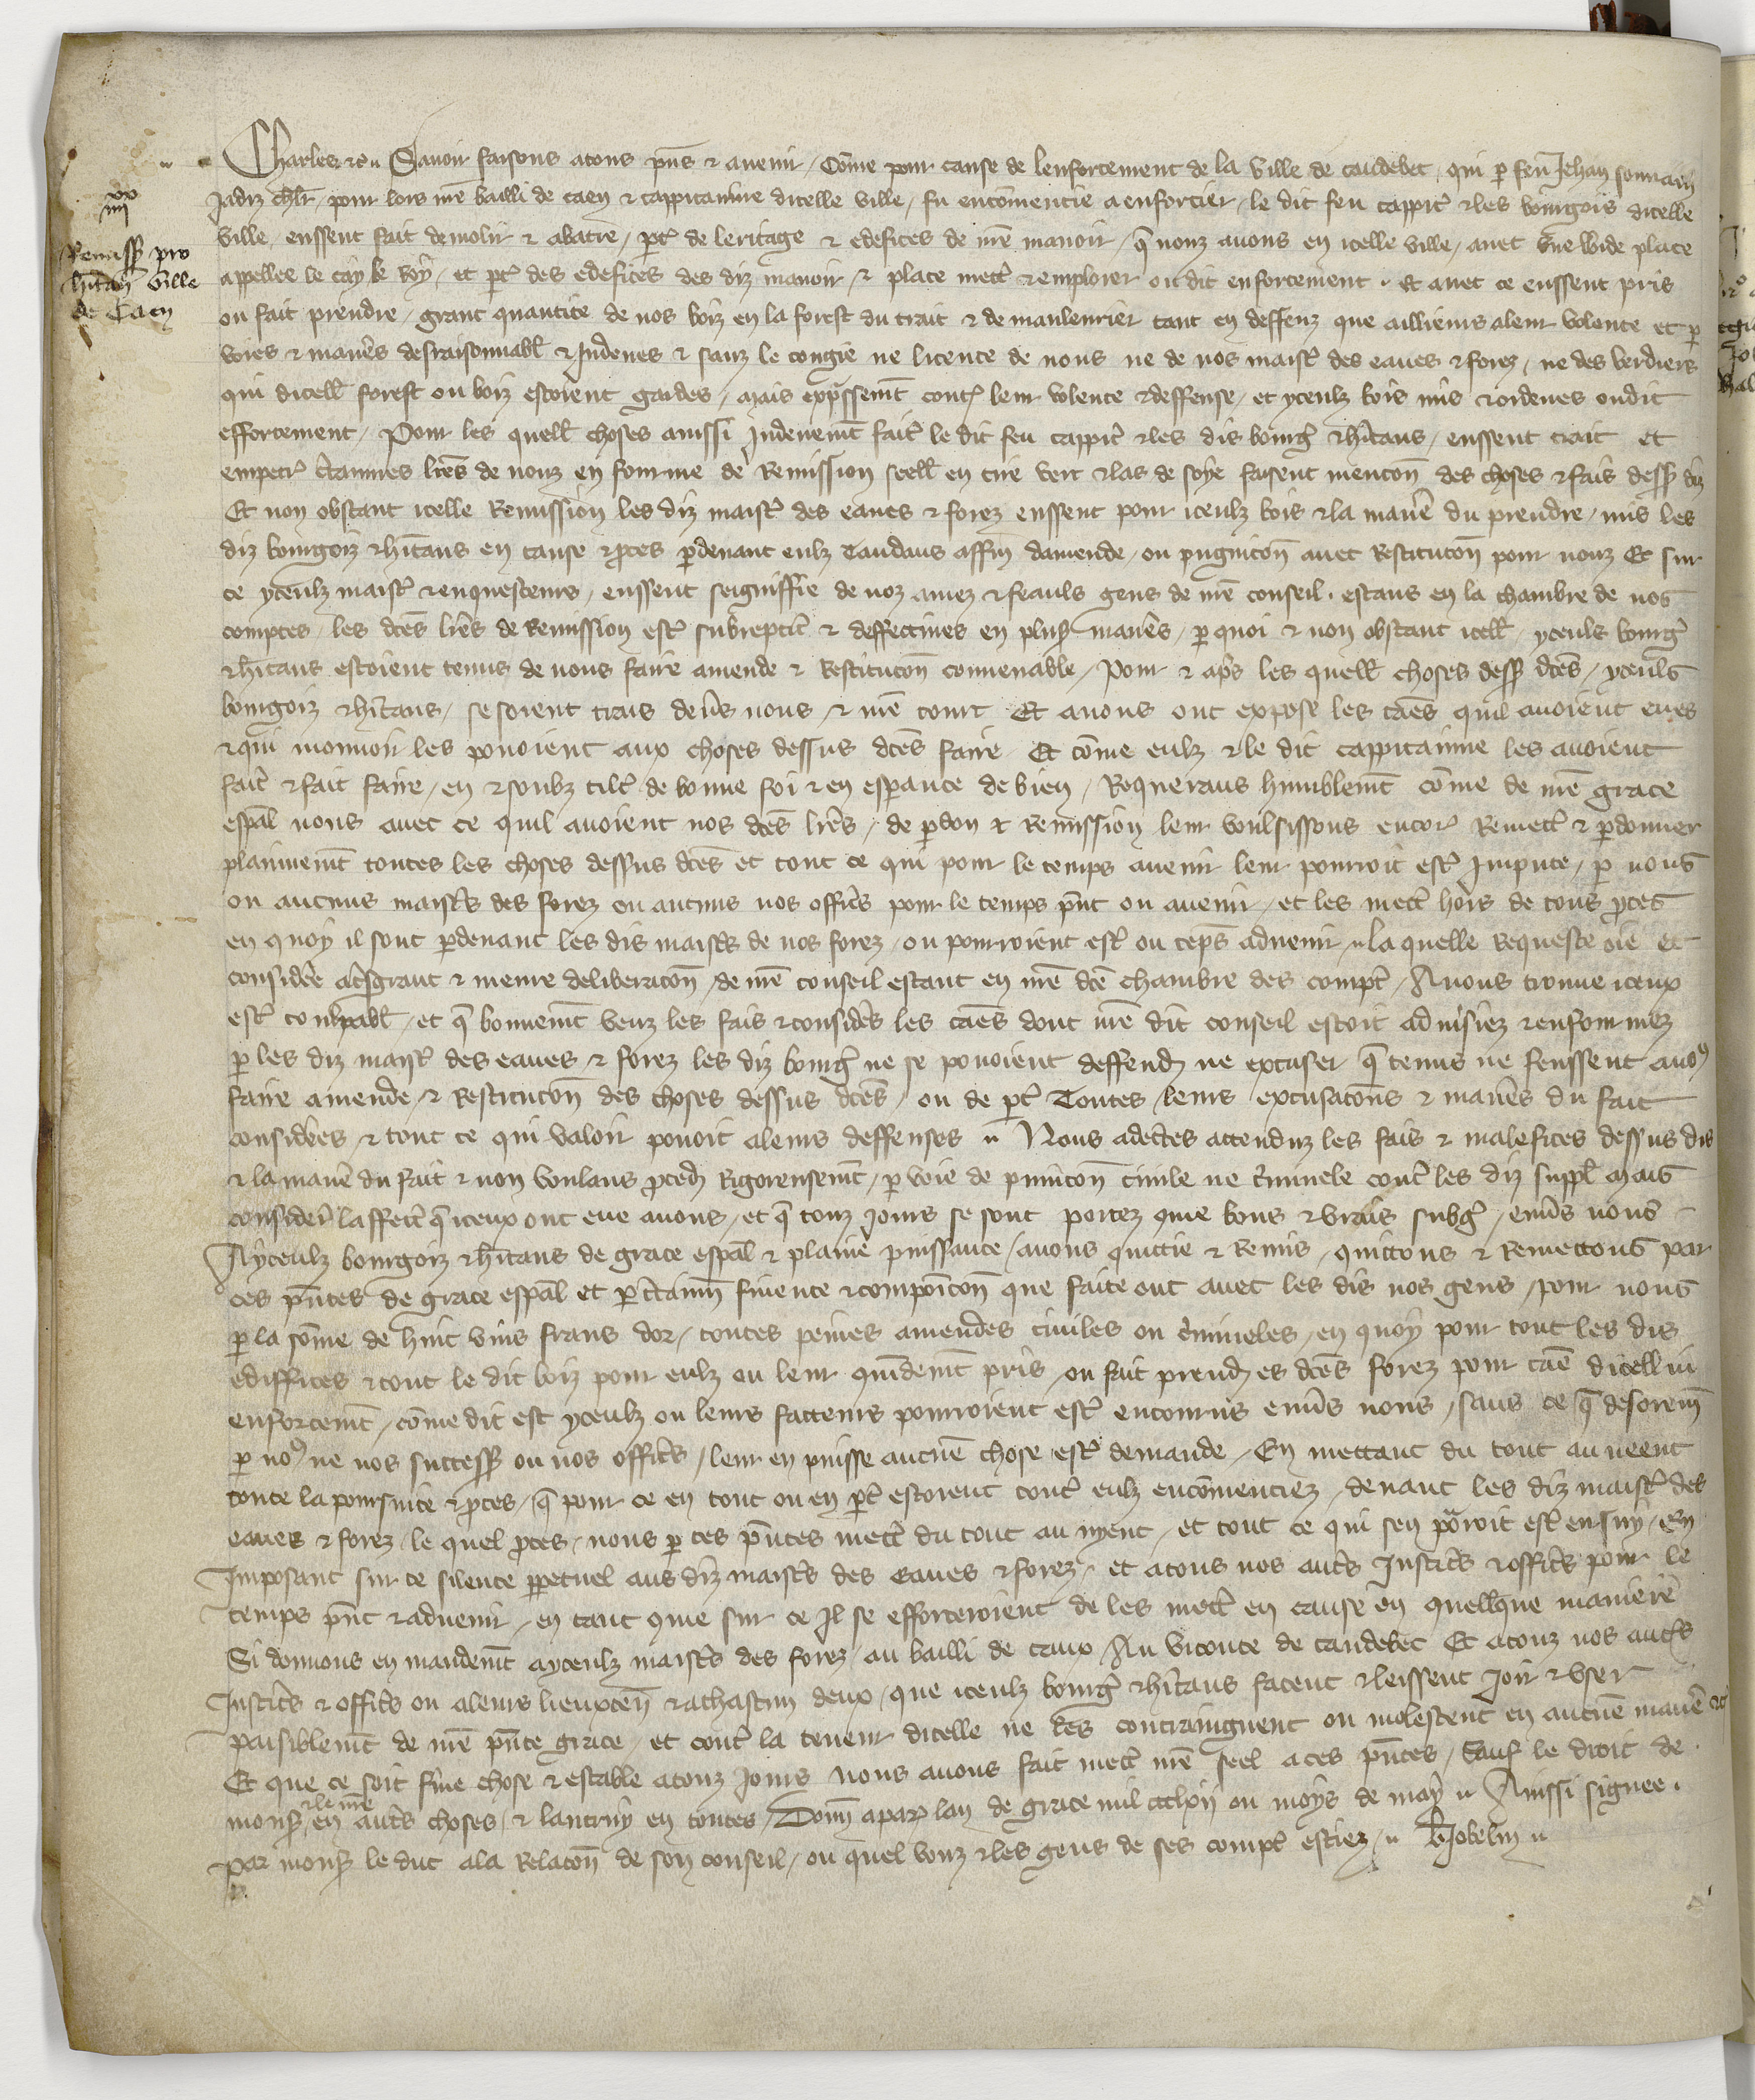 Charles etc. Savoir faisons a tous p̃ns & avenir / Cõme pour cause de lenforcement de la ville de caudebec qui p feu Jehan sonnain
jadiz chlr̃ / pour lors nr̃e bailli de caen & cappitainne dicelle ville / fu encõmencie a enforcier / le dit feu cappit̃ & les bourgois dicelle
iiiixx
Remissp̃ pro
hitãn ville
de Caen
ville eussent fait demolir & abatre / pt̃ de leritage & edefices de nr̃e manoir / q̃ nouz avons en icelle ville / avec vne wide place
appellee le cay le Roy / et pt̃ des edefices des diz manoir / & place mett̃ & emploier ou dit enforcement . Et avec ce eussent pris
ou fait prendre / grant quantite de nos boiz en la forest du trait & de maulevrier tant en deffenz que aillieurs a leur volente et p
voies & manr̃es desraisonnabl̃ & Indeues & sanz le congie ne licence de nous ne de nos maist̃ des eaues & forez / ne des verdiers
qui dicell̃ forest ou boiz estoient gardes / mais exp̃ssemt̃ cont̃ leur volente & deffense / et yceulz bois mis & ordenes ou dit
efforcement / Pour les quell̃ choses ainssi Indeuemt̃ fait̃ le dit feu cappit̃ & les dis bourg̃ & hit̃ans / eussent trait et
empet̃ c̃tainnes lr̃es de nouz en fourme de Remission seell̃ en cire vert & las de soye faisent mencon̄ des choses & fais dessp̃ diz
Et non obstant icelle Remission les diz maist̃ des eaues & forez eussent pour iceulz bois & la manr̃e du prendre / mis les
diz bourgoiz & hit̃ans en cause & p̃ces p devant eulz Tandans affin damende / ou pugnicon̄ avec Restitucon̄ pour nouz Et sur
ce yceulz maist̃ & enquesteurs / eussent seigniffie de noz amez & feauls gens de nr̃e conseil . estans en la chambre de nos
comptes / les dc̃es lr̃es de Remission est̃ subreptic̃ & deffectives en plus̃ manr̃es / p quoi & non obstant icell̃ yceuls bourg̃
& hit̃ans estoient tenus de nous faire amende & Restitucon̄ convenable / Pour & ap̃s les quell̃ choses dessp̃ dc̃es / yceuls
bourgoiz & hit̃ans / se soient trais deṽs nous & nr̃e court Et a nous ont expose les cães quil avoient eues
& qui mouvoir les pouoient aux choses dessus dc̃es faire Et cõme eulz & le dit cappitainne les avoient
fait̃ & fait faire / en & soubz titl̃ de bonne foi & en esperance de bien / Requerans humblemt̃ cõme de nr̃e grace
esp̃al nous avec ce quil avoient nos dc̃es lr̃es / de pdon & Remission leur voulsissons encor̃ Remett̃ & pdonner
plainnemt̃ toutes les choses dessus dc̃es et tout ce qui pour le temps avenir leur pourroit est̃ Impute / p nous
ou aucuns maist̃s des forez ou aucuns nos offic̃s pour le temps p̃nt ou avenir / et les mett̃ hors de tous p̃ces
en quoy il sont pdevant les dis maist̃s de nos forez / ou pourroient est̃ ou temps advenir // la quelle Requeste oie et
considere a t̃sgrant & meure deliberacon̄ / de nr̃e conseil estant en nr̃e dc̃e chambre des compt̃ / Avons trouve iceux
est̃ coulpabl̃ / et q̃ bonnemt̃ veuz les fais & consider̃s les cães dont nr̃e dit conseil estoit advisiez & enfourmez
p les diz maist̃ des eaues & forez les diz bourg̃ ne se pouoient deffend̃ ne excuser q̃ tenus ne feussent a no9
faire amende / & Restitucon̄ des choses dessus dc̃es / ou de pt̃ Toutes leurs excusacon̄s & manr̃es du fait
considrees / & tout ce qui valoir pouoit a leurs deffenses // Nous adectes attenduz les fais & malefices dessus dis
& la manr̃e du fait & non voulans p̃ced̃ Rigoreusemt̃ / p voie de punicon̄ civile ne c̃minele cont̃ les diz suppl̃ mais
consider̃ laffect̃ q̃ iceux ont eue a nous / et q̃ touz jours se sont portez cõme bons & vrais subg̃ / enṽs nous
Ayceulz bourgoiz & hit̃ans de grace esp̃al & plainne puissance / avons quittie & Remis / quittons & Remettons par
ces p̃ntes de grace esp̃al et p c̃tainn̄ finence & composicon̄ que faite ont avec les dis nos gens / pour nous
p la som̃e de huit vins frans dor / toutes peines amendes civiles ou c̃mineles / en quoy pour tout les dis
ediffices & tout le dit boiz pour eulz ou leur q̃mdemt̃ pris / ou fait prend̃ es dc̃es forez pour cãe dicellui
enforcemt̃ / cõme dit est yceulz ou leurs facteurs pourroient est̃ encourus enṽs nous / sans ce q̃ desorem̄
p no9 ne nos successp̃ ou nos offic̃s / leur en puisse aucune chose est̃ demande / En mettant du tout au neent
toute la poursuite & p̃ces / q̃ pour ce en tout ou en pt̃ estoient cont̃ eulz encõmenciez / devant les diz maist̃ des
eaues & forez / le quel p̃ces / nous p ces p̃ntes mett̃ du tout au nyent / et tout ce qui sen pourroit est̃ ensuy / En
Imposant sur ce silence ppetuel aus diz maist̃s des Eaues & forez / et a tous nos aut̃s justic̃s & offic̃s pour le
temps p̃nt & advenir / en tant que sur ce Il se efforceroient de les mett̃ en cause en quellque maniere
Si donnons en mandemt̃ a yceulz maist̃s des forez / au bailli de caux Au viconte de caudebec Et a touz nos aut̃s
justic̃s & offic̃s ou a leurs lieuxten̄ & a chascun deux / que iceulz bourg̃ & hit̃ans facent & leissent joir & vser
paisiblemt̃ de nr̃e p̃nte grace / et cont̃ la teneur dicelle ne les contraingnent ou molestent en aucune manr̃e etc
Et que ce soit ferme chose & estable a touz jours nous avons fait mett̃ nr̃e seel a ces p̃ntes / Sauf le droit de
monsp̃ & le nr̃e en aut̃s choses / & lautruy en toutes / Donn̄ a par̃ lan de grace mil ccclxii ou moys de may // Ainssi signee .
par monsp̃ le duc a la Relacon̄ de son conseil / ou quel vous & les gens de ses compt̃ estiez // G Gobelin //